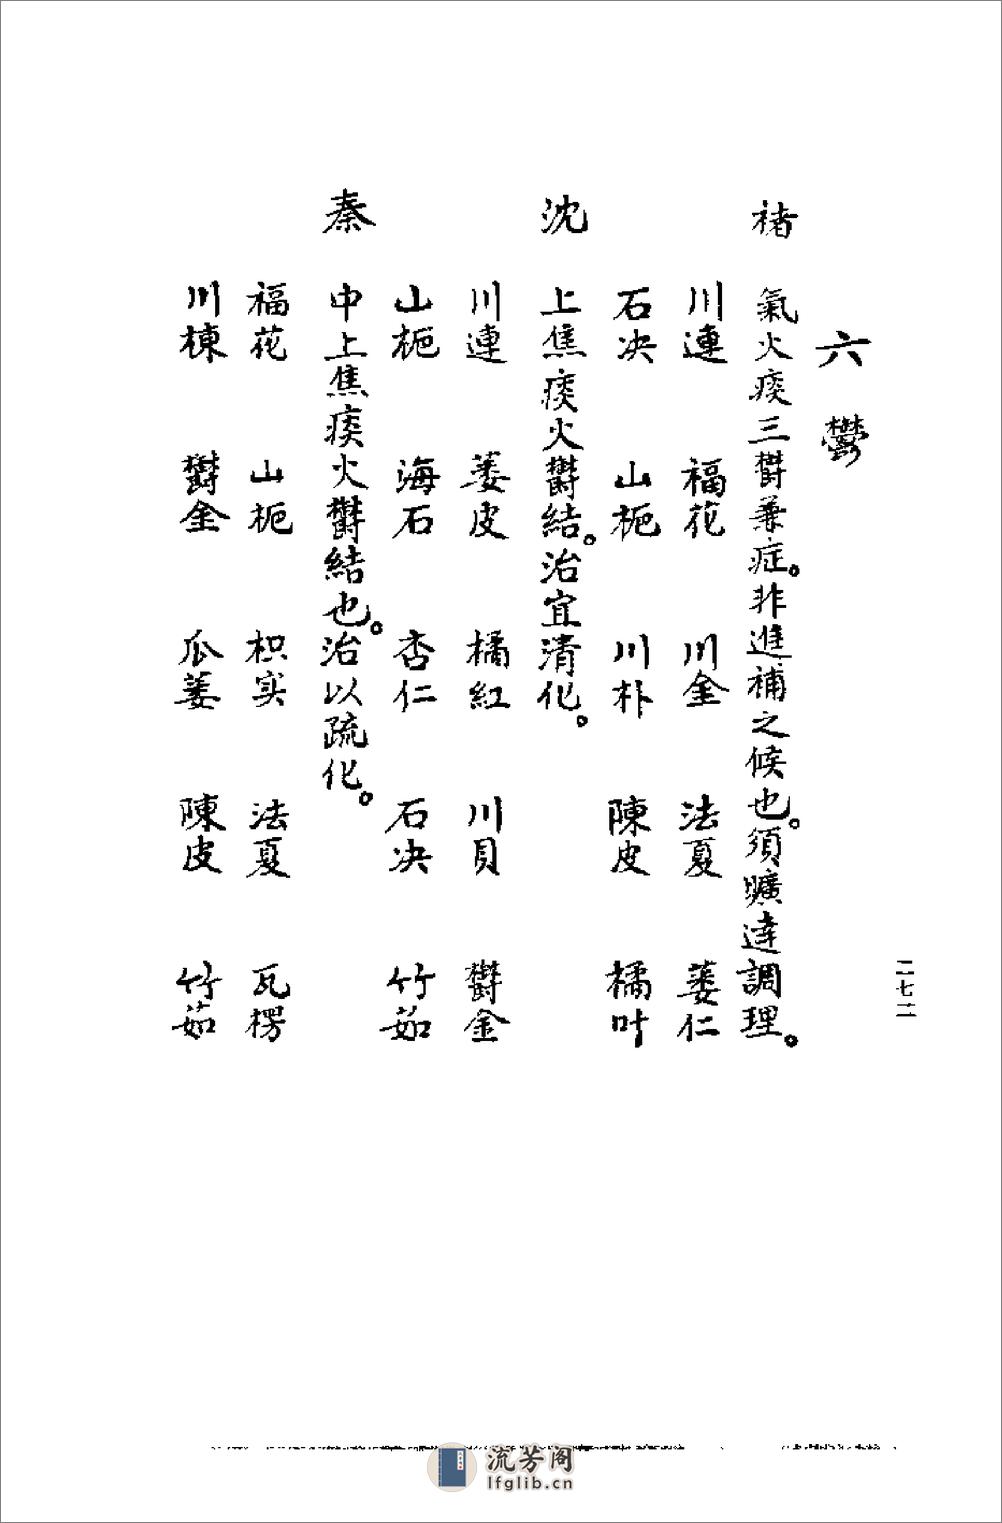 六鬱
褚　氣火痰三鬱兼症。非進補之候也。須曠達調理。
川連　福花　川金　法夏　蒌仁
石决　山栀　川朴　陳皮　橘叶
沈　上焦痰火鬱結。治宜清化。
川連　蒌皮　橘紅　川貝　鬱金
山栀　海石　杏仁　石决　竹茹
秦　中上焦痰火鬱結也。治以疏化。
福花　山栀　枳实　法夏　瓦楞
川楝　鬱金　瓜蒌　陳皮　竹茹
二七二
流芳阁
lfglib.cn